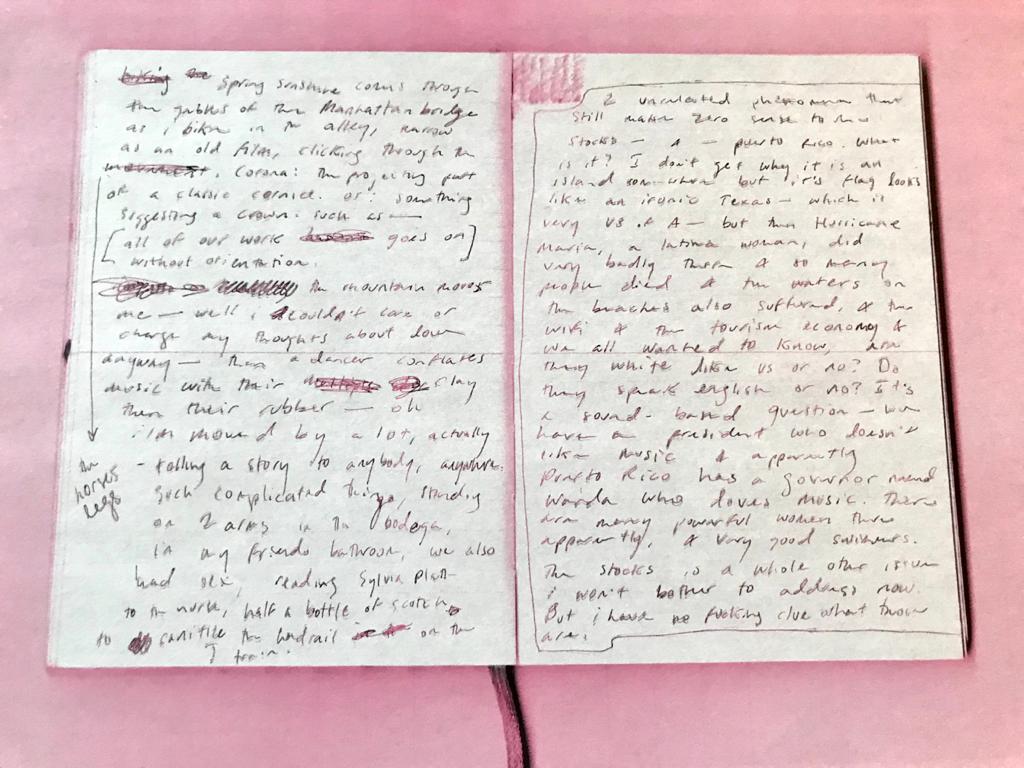 Spring sunshine comes through
the gables of the Manhattan bridge
as i bike in the alley, narrow
as an old film, clicking through the
. Corona: the projecting part
of a classic cornice. or: something
suggesting a crown. such as —
[all of our work goes on]
without orientation.
the mountain moves
me — well, i couldn't care or
change my thoughts about love
anyway — then a dancer conflates
music with their clay
then their rubber — oh
i'm moved by a lot, actually
the
horses
legs
- telling a story to anybody, anywhere.
such complicated things, standing
on 2 arms in the bodega,
in my friends bathroom, we also
had sex, reading Sylvia Plath
to the nurk, half a bottle of scotch
to the handrail on the
J train.
2 unrelated phenomena that
still make zero sense to me
stocks — & — puerto Rico. What
is it? I don't get why it is an
island somewhere but it's flag looks
like an ironic Texas — which is
very US of A — but then Hurricane
Maria, a latina woman, did
very badly there & so many
people died & the waters on
the beaches also suffered, & the
wifi & the tourism economy &
we all wanted to know, are
they white like us or no? Do
they speak english or no? It's
a sound-based question — we
have a president who doesn't
like music & apparently
Puerto Rico has a governor named
Wanda who loves music. There
are many powerful women there
apparently, & very good swimmers.
The stocks is a whole other issue
i won't bother to address now.
But i have no fucking clue what those
are.